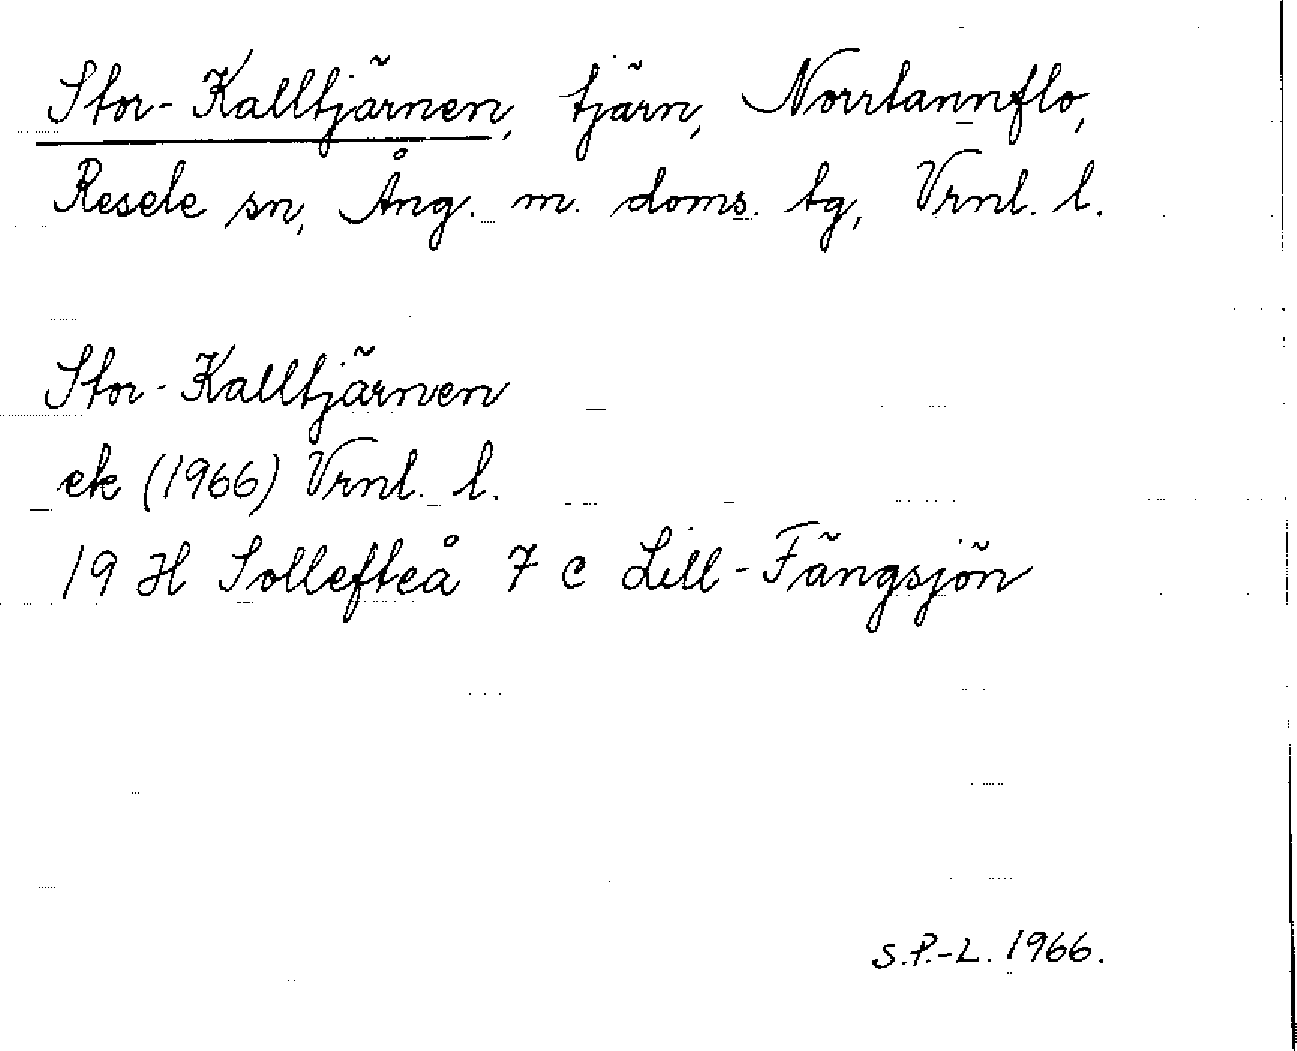 Stor-Kalltjärnen, tjärn, Norrtannflo,
Resele sn, Ång. m. doms. tg, Vrnl. l.
Stor-Kalltjärnen
ek (1966) Vrnl. l.
19 H Sollefteå 7 c Lill-Fängsjön
S.P.-L. 1966.